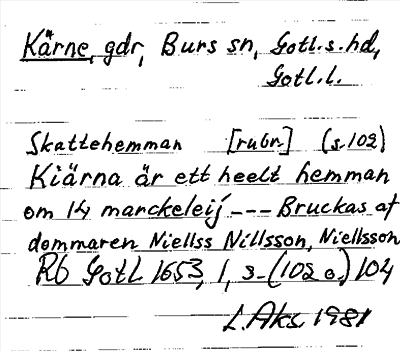 Kärne, gdr, Burs sn, Gotl.s.hd,
Gotl.l.
Skattehemman [rubr.] (s.102)
Kiärna är ett heelt hemman
om 14 marckeleij --- Bruckas af
dommaren Niellss Nillsson, Niellsson
Rb Gotl 1653, 1, s. (102 o.) 104
L.Aks. 1981